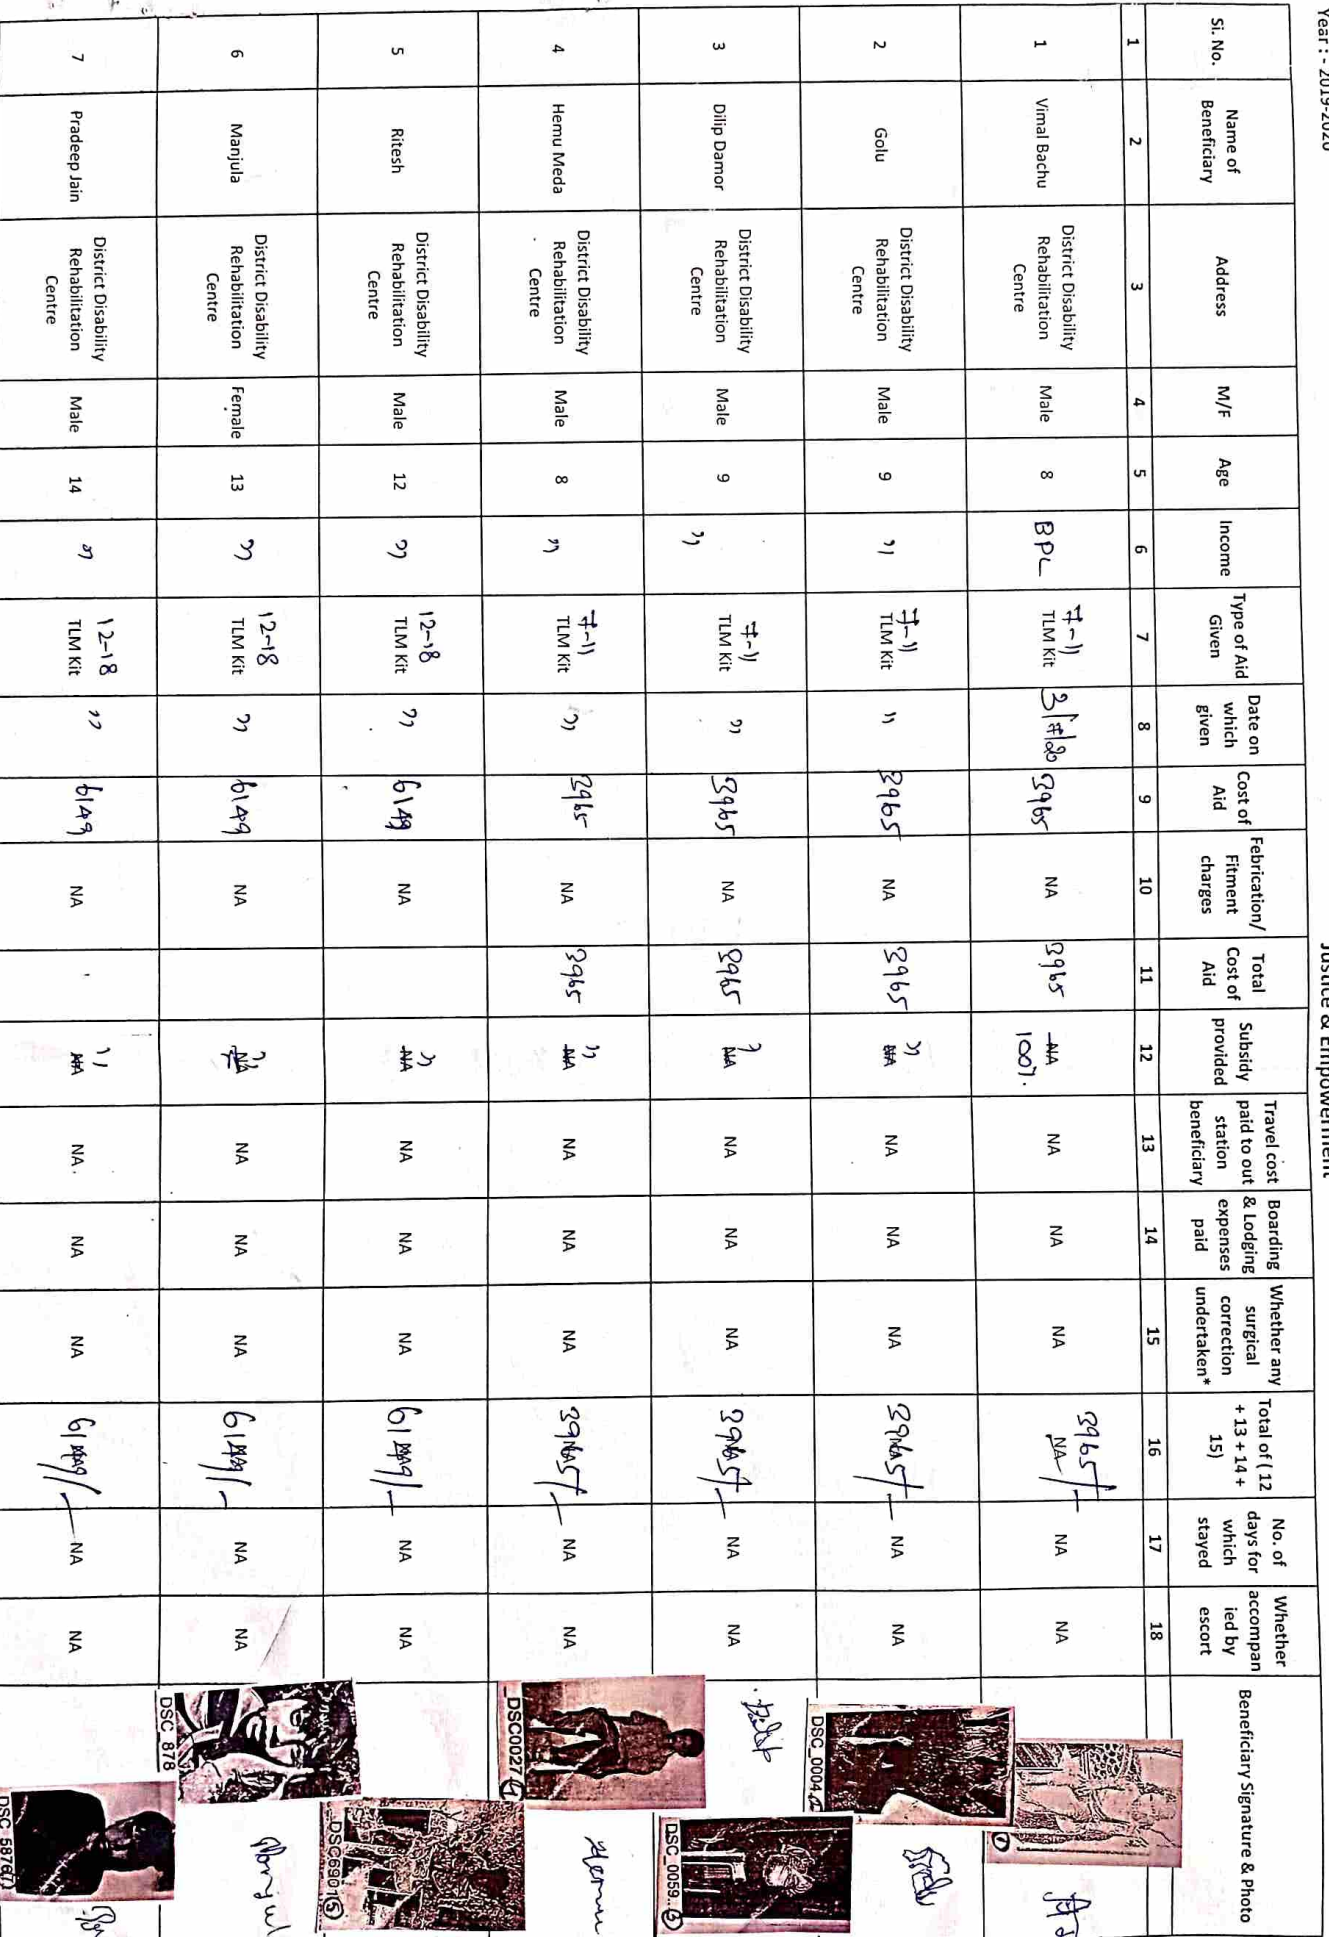 Year : - 2019-2020
Justice & Empowerment
Si. No.
Name of
Beneficiary
Address
M/F
Age
Income
Type of Aid
Given
Date on
which
given
Cost of
Aid
Febrication/
Fitment
charges
Total
Cost of
Aid
Subsidy
provided
Travel cost
paid to out
station
beneficiary
Boarding
& Lodging
expenses
paid
Whether any
surgical
correction
undertaken*
Total of ( 12
+ 13 + 14 +
15)
No. of
days for
which
stayed
Whether
accompan
ied by
escort
Beneficiary Signature & Photo
1 2 3 4 5 6 7 8 9 10 11 12 13 14 15 16 17 18
1
Vimal Bachu
District Disability
Rehabilitation
Centre
Male
8
BPL
7-11
TLM Kit
3/7/20
3965
NA
3965
NA
100%.
NA
NA
NA
3965/-
NA
NA
NA
1
2
Golu
District Disability
Rehabilitation
Centre
Male
9
"
7-11
TLM Kit
"
3965
NA
3965
"
NA
NA
NA
NA
3965/-
NA
NA
DSC_0004
3
Dilip Damor
District Disability
Rehabilitation
Centre
Male
9
"
7-11
TLM Kit
"
3965
NA
3965
"
NA
NA
NA
NA
3965/-
NA
NA
Dilip
DSC_0059..3
4
Hemu Meda
District Disability
Rehabilitation
Centre
Male
8
"
7-11
TLM Kit
"
3965
NA
3965
"
NA
NA
NA
NA
3965/-
NA
NA
_DSC0027 4
Hemu
5
Ritesh
District Disability
Rehabilitation
Centre
Male
12
"
12-18
TLM Kit
"
6149
NA
"
NA
NA
NA
NA
6149/-
NA
NA
_DSC6901 5
6
Manjula
District Disability
Rehabilitation
Centre
Female
13
"
12-18
TLM Kit
"
6149
NA
"
NA
NA
NA
NA
6149/-
NA
NA
DSC_878
Manjul
7
Pradeep Jain
District Disability
Rehabilitation
Centre
Male
14
"
12-18
TLM Kit
"
6149
NA
"
NA
NA.
NA
NA
6149/-
NA
NA
DSC_5876 7